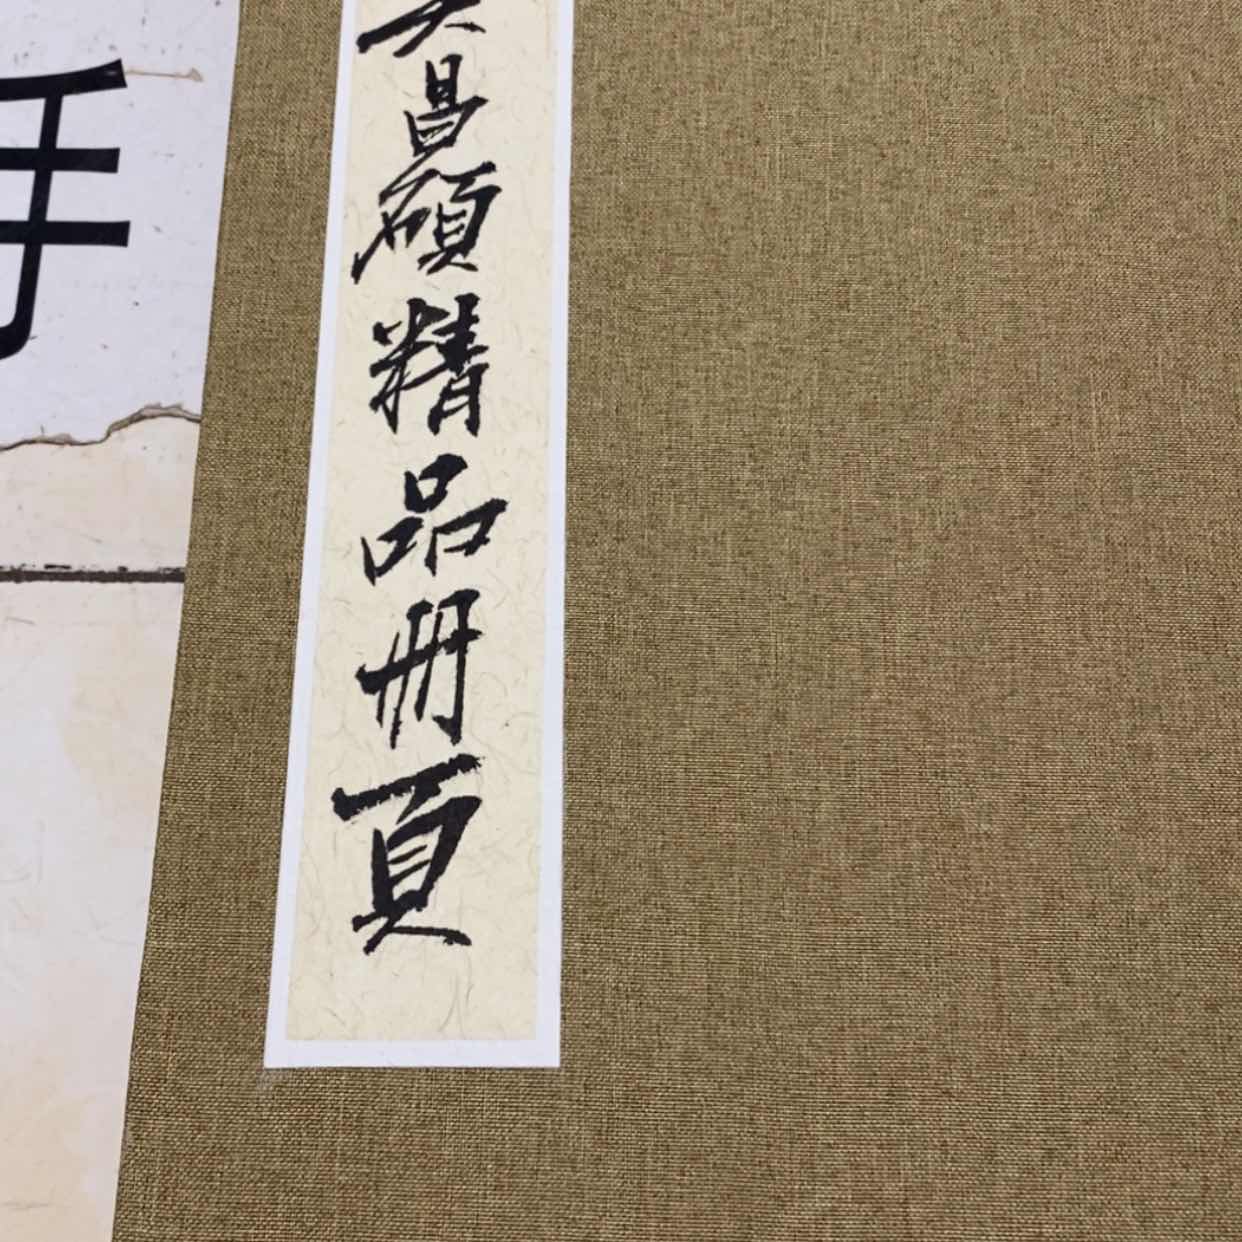 昌碩精品册頁